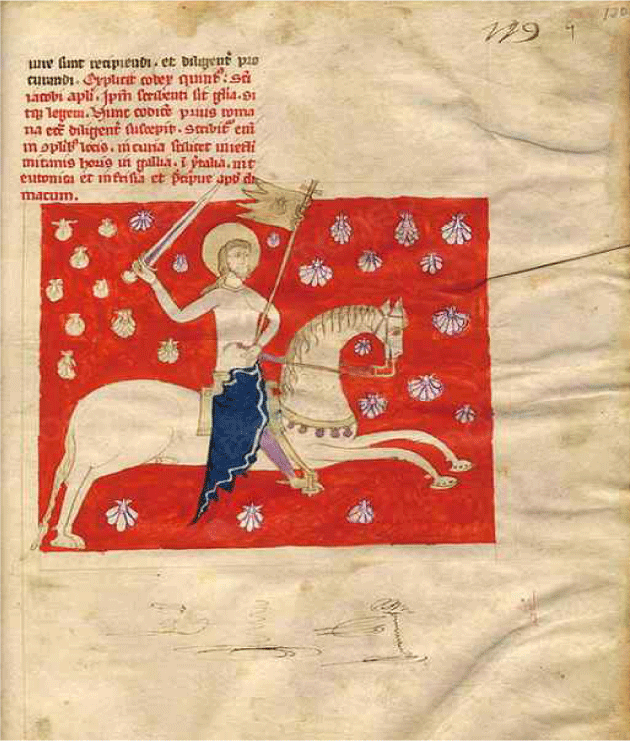 iure sunt recipiendi . et diligent pro
curandi . Explicit codex quint . Sci
iacobi apli . Ipm scribenti sit glia . si
tq legenti . Hunc codice prius roma
na ecc diligent suscepit . Scribit eni
in locis . in scilicet in
mitanis horis in gallia . i ytalia . in t
eutonica et in frisia et precipue apd clu
niacum .
119
120